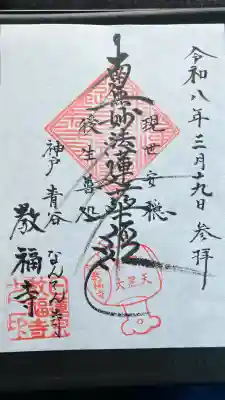 令和八年三月十九日 参拝
現世安穏
南無妙法蓮華経
後生善処
神戸 青谷
なんてん寺
教福寺
天照大
教福寺